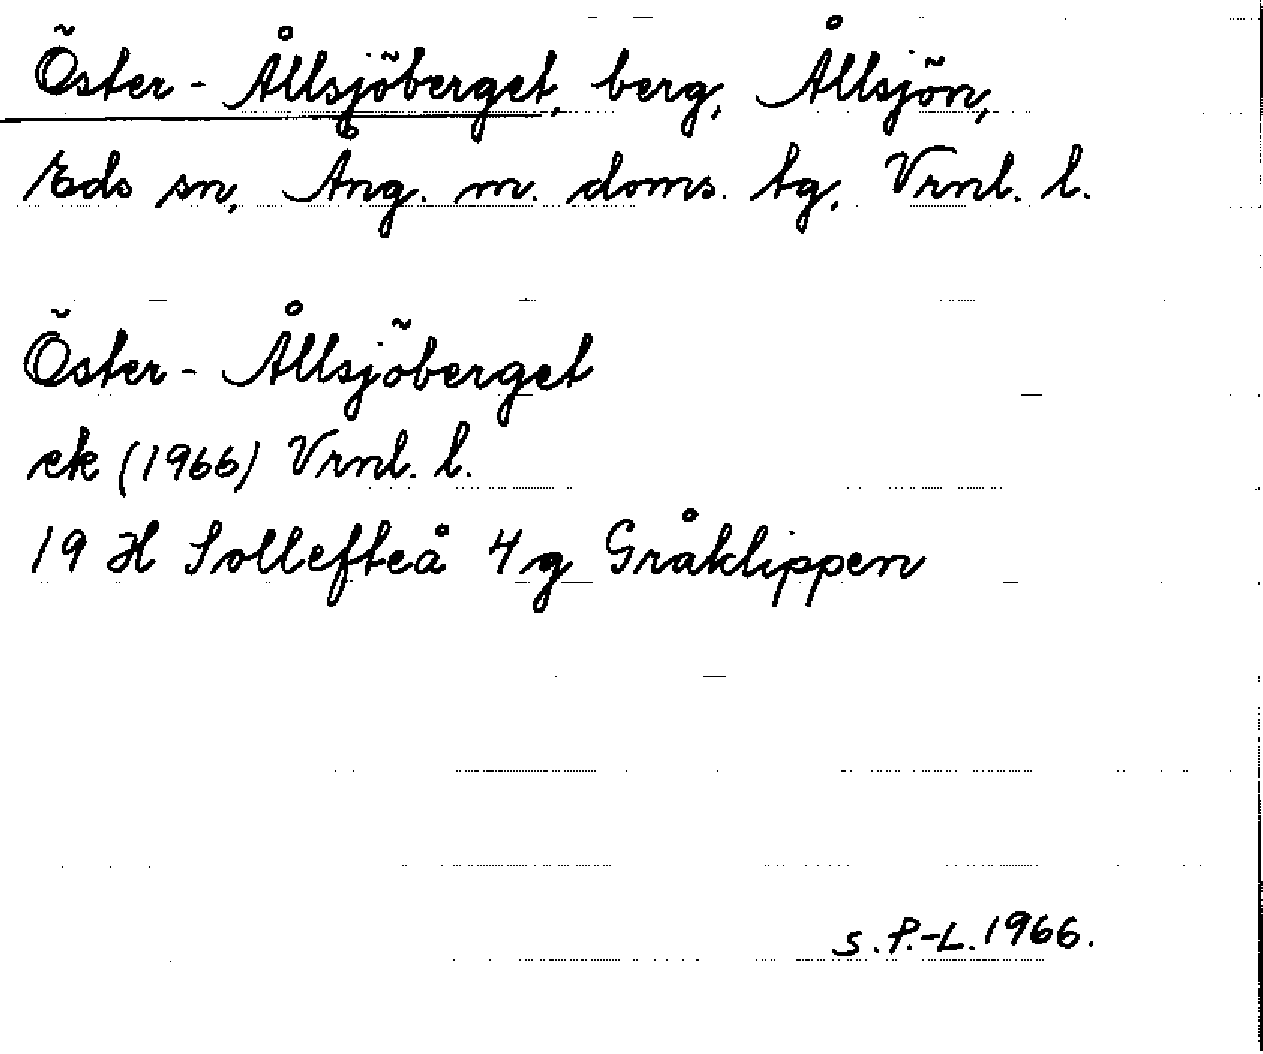 Öster-Ållsjöberget, berg, Ållsjön,
Eds sn, Ång. m. doms. tg, Vrnl. l.
Öster-Ållsjöberget
ek (1966) Vrnl. l.
19 H Sollefteå 4 g Gråklippen
S.P.-L. 1966.